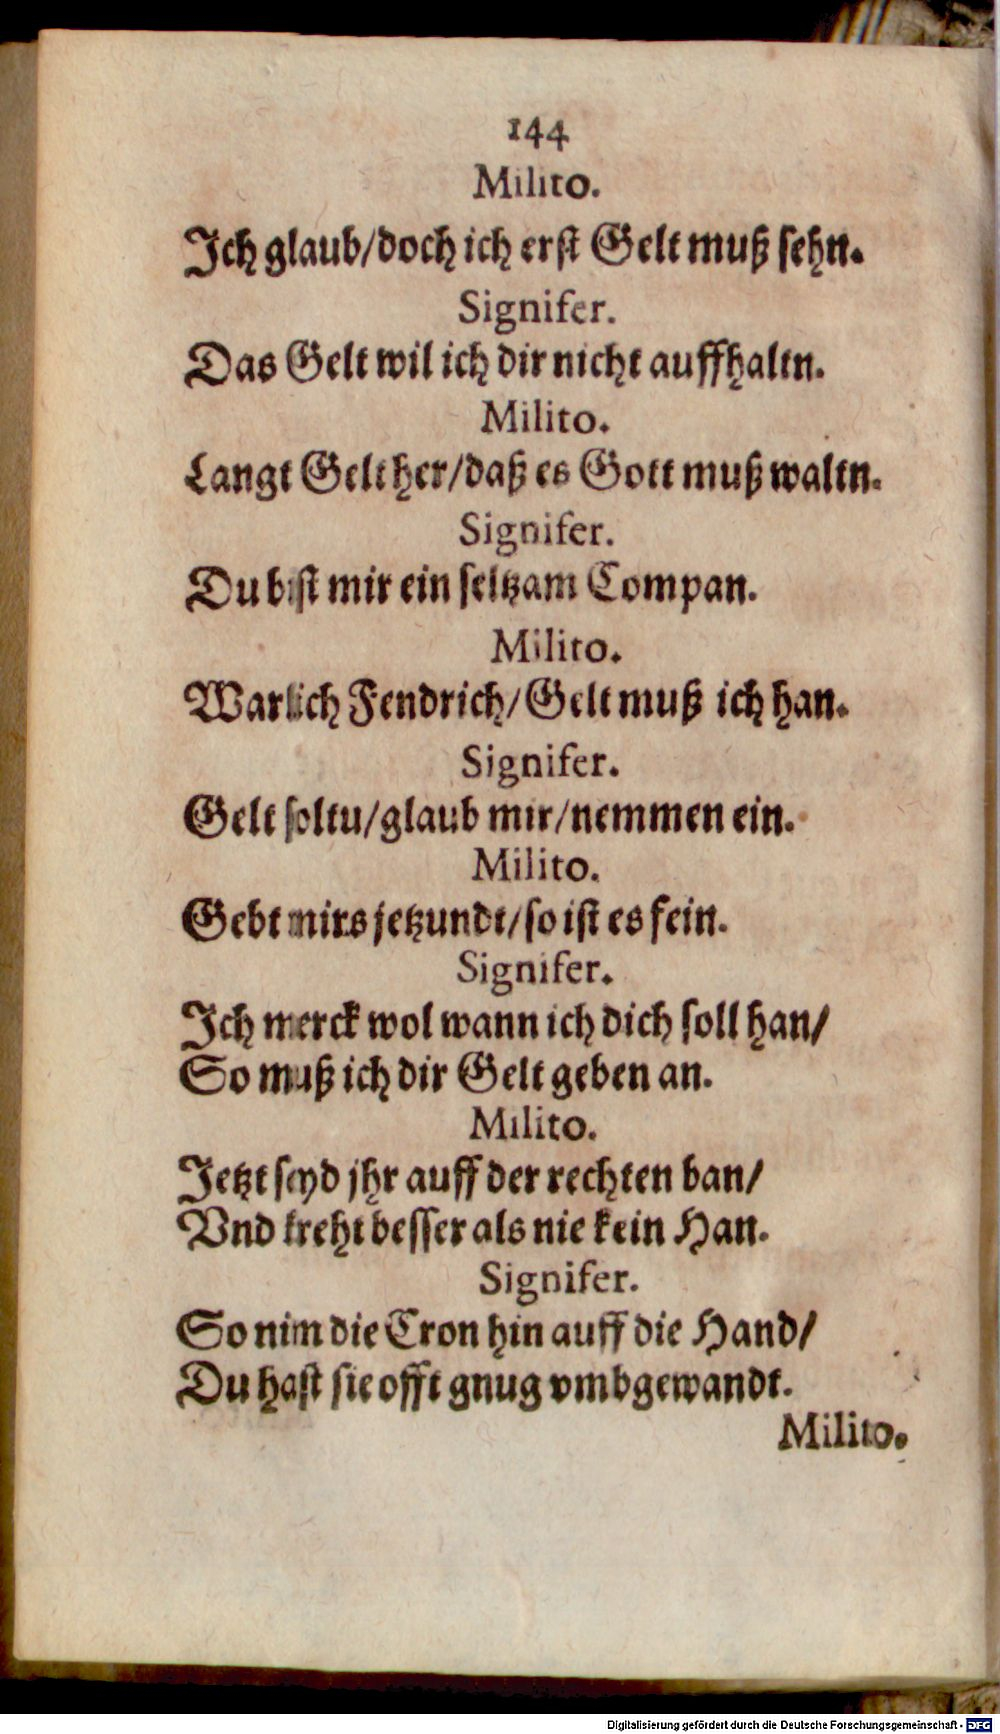 144
Milito.
Ich glaub/doch ich erst Gelt muß sehn.
Signifer.
Das Gelt wil ich dir nicht auffhaltn.
Milito.
Langt Gelt her/daß es Gott muß waltn.
Signifer.
Du bist mir ein seltzam Compan.
Milito.
Warlich Fendrich/Gelt muß ich han.
Signifer.
Gelt soltu/glaub mir/nemmen ein.
Milito.
Gebt mirs jetzundt/so ist es fein.
Signifer.
Ich merck wol wann ich dich soll han/
So muß ich dir Gelt geben an.
Milito.
Jetzt seyd jhr auff der rechten ban/
Vnd kreht besser als nie kein Han.
Signifer.
So nim die Cron hin auff die Hand/
Du hast sie offt gnug vmbgewandt.
Milito.
Digitalisierung gefördert durch die Deutsche Forschungsgemeinschaft - DFG